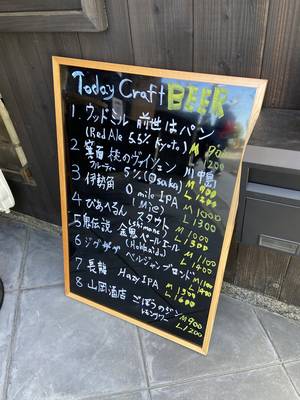 Today Craft BEER
1. ウッドミル 前世はパン
(Red Ale 5.5% Kyoto) M 900
L 1200
2 箕面 桃のヴァイツェン
フルーティー 5% (Osaka) M 900
L 1200
3 伊勢角 0 mile IPA
(Mie) M 1000
L 1300
4 びあへるん スタウト
(Shimane) M 1000
L 1300
5 金忽ペールエール
(Hokkaido) M 1100
L 1400
6 ジグザグ ベルジャンブロンド
M 1100
L 1400
7 長龍 Hazy IPA M 1300
L 1600
8 山岡酒店 ごぼうのジン
レモンサワー M 900
L 1200